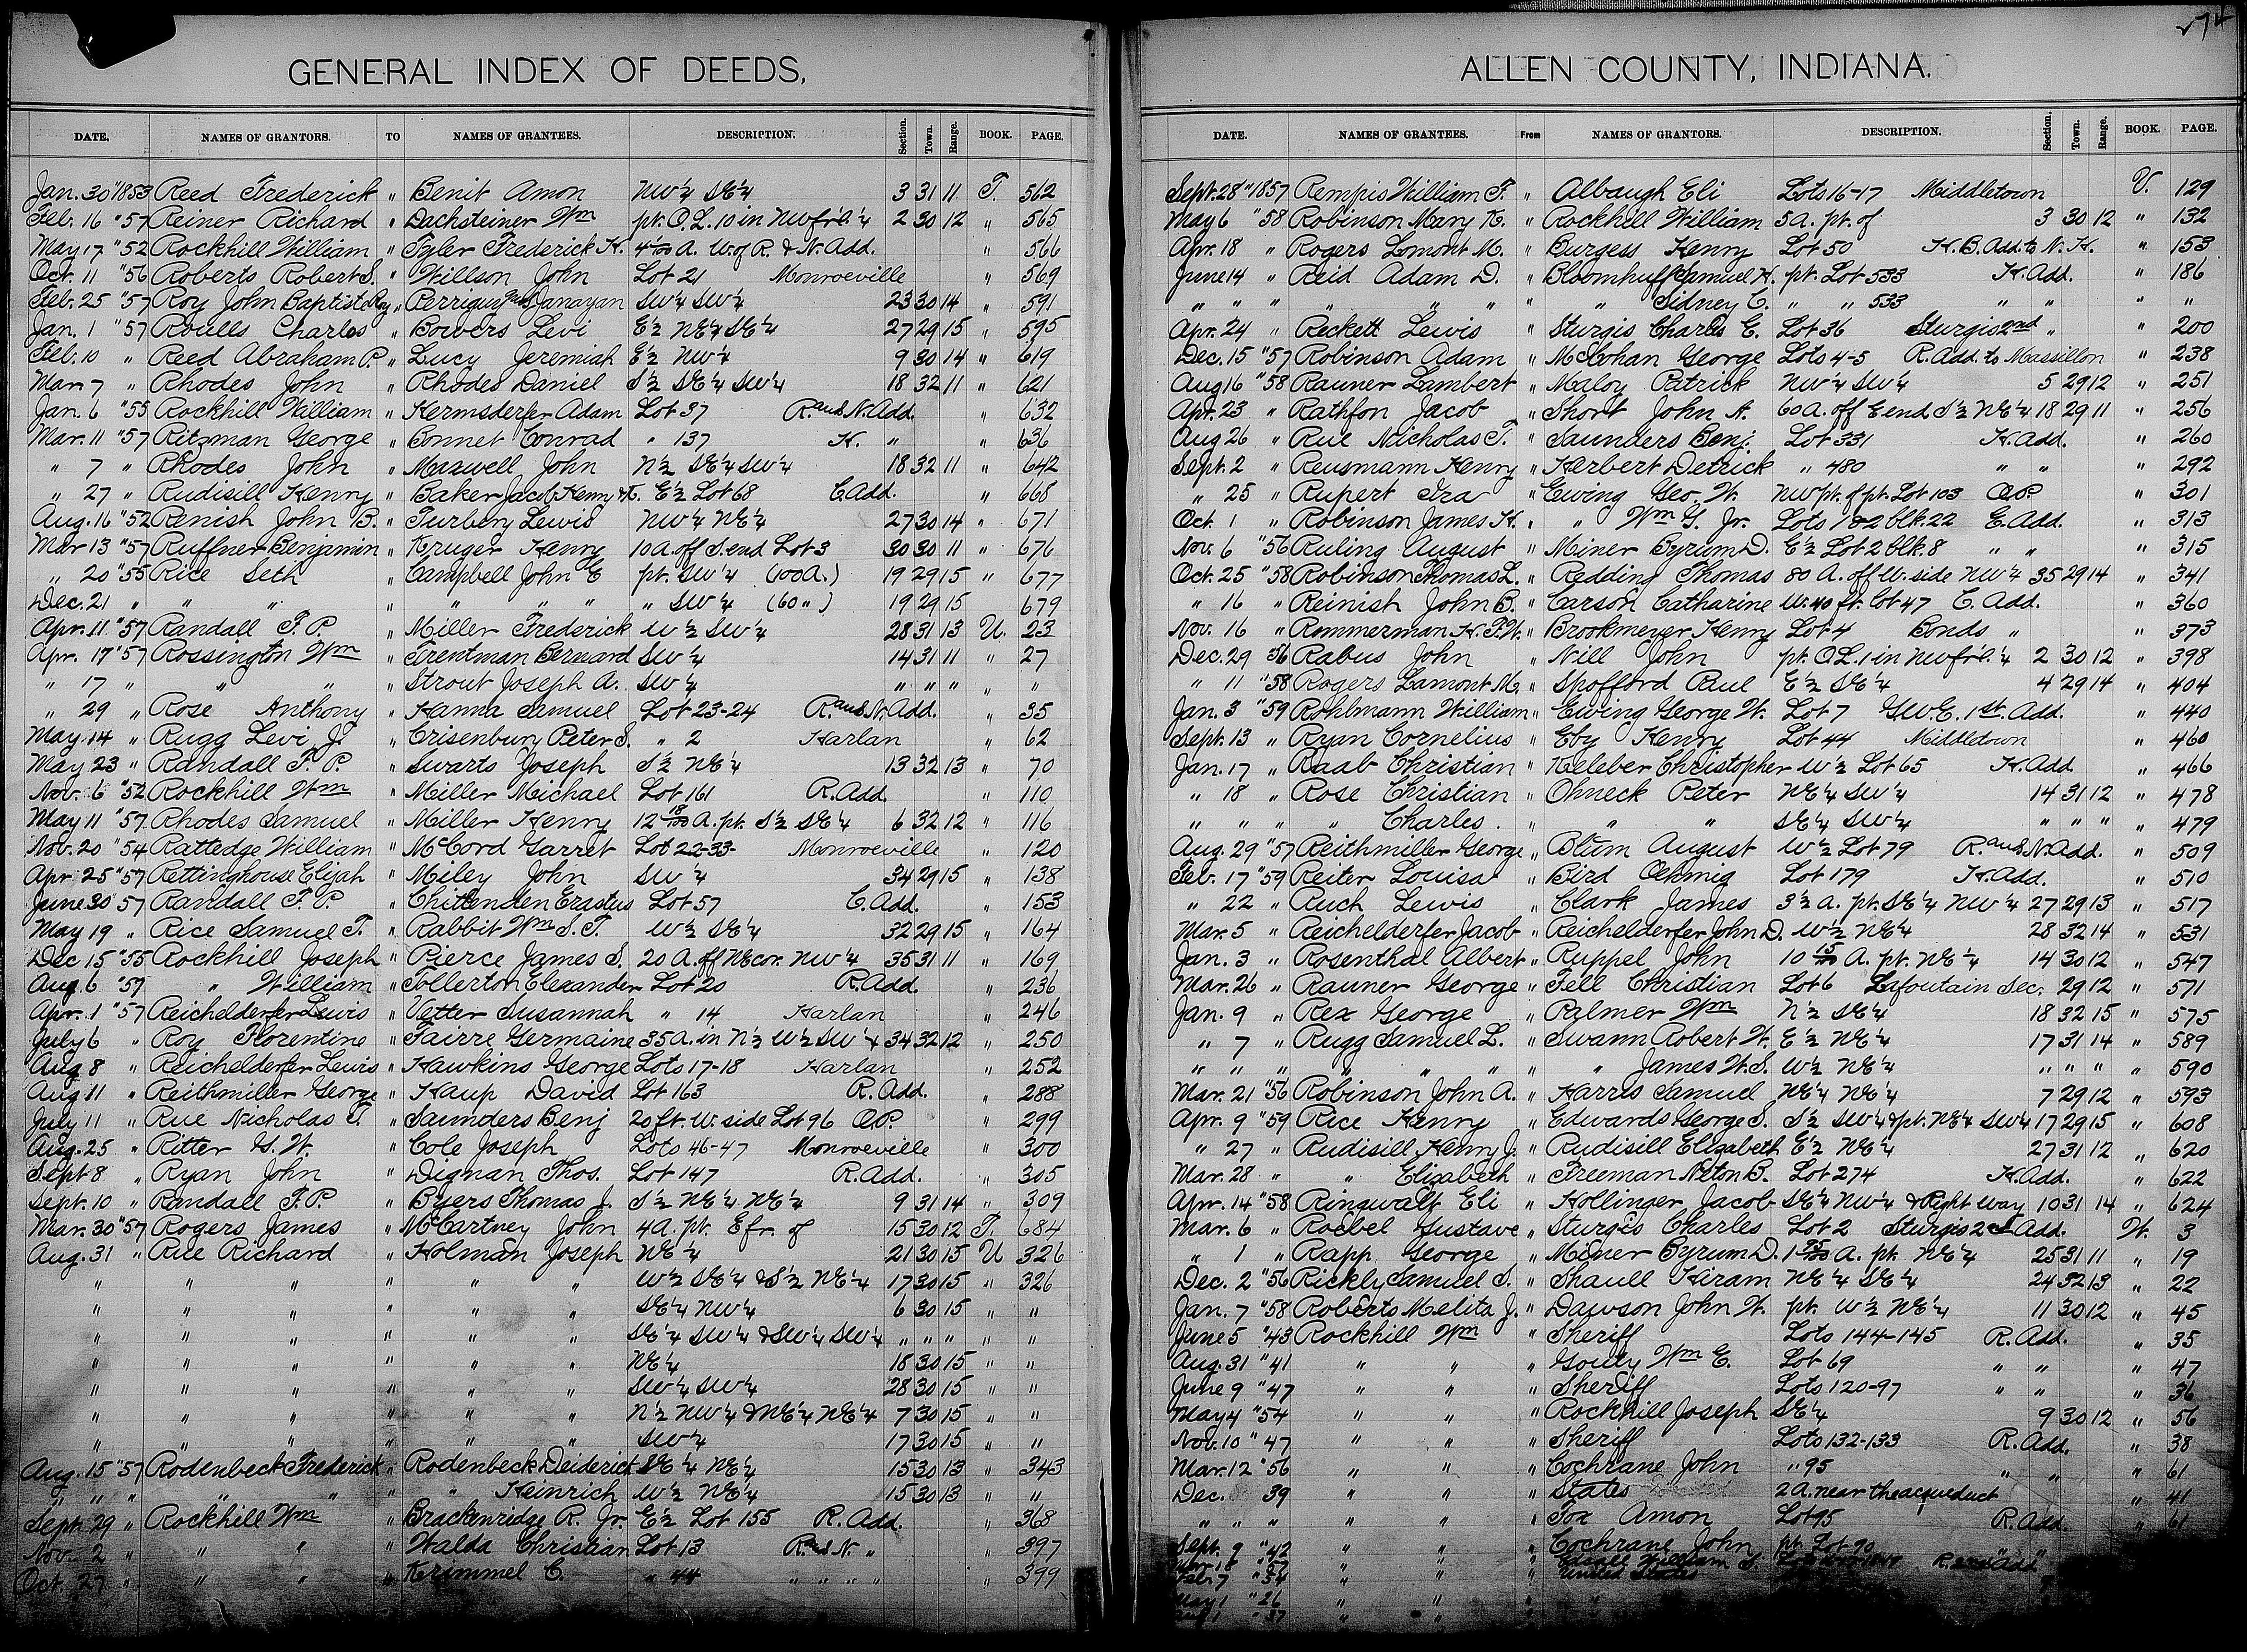 274
GENERAL INDEX OF DEEDS,
DATE. NAMES OF GRANTORS. TO NAMES OF GRANTEES. DESCRIPTION. Section. Town. Range. BOOK. PAGE.
Jan. 30 " 1853 Reed Frederick " Benit Amon NW ¼ SE ¼ 3 31 11 T. 562
Feb. 16 " 57 Reiner Richard " Dachsteiner Wm pt. O.L. 10 in NW fr'l. ¼ 2 30 12 " 565
May 17 " 52 Rockhill William " Tyler Frederick H. A. W. of R. & N. Add. " 566
Oct. 11 " 56 Roberts Robert S. " Willson John Lot 21 Monroeville " 569
Feb. 25 " 57 Roy John Baptiste Roy " Perrigus SW ¼ SW ¼ 23 30 14 " 591
Jan. 1 " 57 Roulls Charles " Bowers Levi E ½ NE ¼ SE ¼ 27 29 15 " 595
Feb. 10 " Reed Abraham P. " Lucy Jeremiah E ½ NW ¼ 9 30 14 " 619
Mar. 7 " Rhodes John " Rhodes Daniel S ½ SE ¼ SW ¼ 18 32 11 " 621
Jan. 6 " 55 Rockhill William " Hermsdorfer Adam Lot 37 R. and N. Add. " 632
Mar. 11 " 57 Ritzman George " Bonnet Conrad " 137 H. " " 636
" 7 " Rhodes John " Maxwell John N ½ SE ¼ SW ¼ 18 32 11 " 642
" 27 " Rudisill Henry " Baker Jacob, Henry & K. E ½ Lot 68 C. Add. " 668
Aug. 16 " 52 Renish John B. " Turbery Lewis NW ¼ NE ¼ 27 30 14 " 671
Mar 13 " 57 Ruffner Benjamin " Kruger Henry 10 A. off S. end Lot 3 30 30 11 " 676
" 20 " 55 Rice Seth " Campbell John E pt. SW ¼ (100 A.) 19 29 15 " 677
Dec. 21 " " " " " " " " SW ¼ (60 ") 19 29 15 679
Apr. 11 " 57 Randall F. P. " Miller Frederick W ½ SW ¼ 28 31 13 U. 23
Apr. 17 " 57 Rossington Wm " Trentman Bernard SW ¼ 14 31 11 " 27
" 17 " " " " Strout Joseph A. SW ¼ " " " " "
" 29 " Rose Anthony " Hanna Samuel Lot 23-24 R. and N. Add. " 35
May 14 " Rugg Levi J. " Crisenbury Peter S. " 2 Harlan " 62
May 23 " Randall F. P. " Swarts Joseph S ½ NE ¼ 13 32 13 " 70
Nov. 6 " 52 Rockhill Wm " Miller Michael Lot 161 R. Add. " 110
May 11 " 57 Rhodes Samuel " Miller Henry 12 18/100 A. pt. S ½ SE ¼ 6 32 12 " 116
Nov. 20 " 54 Ratledge William " McCord Garret Lot 22-33- Monroeville " 120
Apr. 25 " 57 Rettinghouse Elijah " Miley John SW ¼ 34 29 15 " 138
June 30 " 57 Randall F. P. " Chittenden Erastus Lot 57 C. Add. " 153
May 19 " Rice Samuel T. " Rabbit Wm S. T. W ½ SE ¼ 32 29 15 " 164
Dec 15 " 55 Rockhill Joseph " Pierce James S. 20 A. off NE cor. NW ¼ 35 31 11 " 169
Aug. 6 " 57 " William " Tollerton Elexander Lot 20 R. Add. " 236
Apr. 1 " 57 Reichelderfer Lewis " Vetter Susannah " 14 Harlan " 246
July 6 " Roy Florentine " Fairre Germaine 35 A. in N ½ W ½ SW ¼ 34 32 12 " 250
Aug 8 " Reichelderfer Lewis " Hawkins George Lots 17-18 Harlan " 252
Aug 11 " Reithmiller George " Haup David Lot 163 R. Add. " 288
July 11 " Rue Nicholas T. " Saunders Benj 20 ft. W. side Lot 96 O.P. " 299
Aug. 25 " Ritter G. W. " Cole Joseph Lots 46-47 Monroeville " 300
Sept 8 " Ryan John " Dignan Thos. Lot 147 R. Add. " 305
Sept. 10 " Randall F. P. " Byers Thomas J. S ½ NE ¼ NE ¼ 9 31 14 " 309
Mar. 30 " 57 Rogers James " McCartney John 4 A. pt. E fr. of 15 30 12 T. 684
Aug. 31 " Rue Richard " Holman Joseph NE ¼ 21 30 15 U 326
" " " " " " W ½ SE ¼ & S ½ NE ¼ 17 30 15 " 326
" " " " " " SE ¼ NW ¼ 6 30 15 " "
" " " " " " SE ¼ SW ¼ & SW ¼ SW ¼ " " " " "
" " " " " " NE ¼ 18 30 15 " "
" " " " " " SW ¼ SW ¼ 28 30 15 " "
" " " " " " N ½ NW ¼ & NE ¼ NE ¼ 7 30 15 " "
" " " " " " SW ¼ 17 30 15 " "
Aug. 15 " 57 Rodenbeck Frederick " Rodenbeck Deiderick SE ¼ NE ¼ 15 30 13 " 343
" " " " " " " Heinrich W ½ NE ¼ 15 30 13 " "
Sept. 29 " Rockhill Wm " Brackenridge R. Jr. E ½ Lot 155 R. Add. " 368
Nov. 2 " " " " Walda Christian Lot 13 R. and N. " " 397
Oct. 27 " " " " Krimmel C. " 44 " " " " " 399
ALLEN COUNTY, INDIANA.
DATE. NAMES OF GRANTEES. From NAMES OF GRANTORS. DESCRIPTION. Section. Town. Range. BOOK. PAGE.
Sept. 28 " 1857 Rempis William F. " Albaugh Eli Lots 16-17 Middletown V. 129
May 6 " 58 Robinson Mary K. " Rockhill William 5 A. pt. of 3 30 12 " 132
Apr. 18 " Rogers Lomont M. " Burgess Henry Lot 50 H. B. Add. to N. H. " 153
June 14 " Reid Adam D. " Bloomhuff Samuel H. pt. Lot 533 H. Add. " 186
" " " " " " " " Sidney C. " " 533 " " " "
Apr. 24 " Reckett Lewis " Sturgis Charles E. Lot 36 Sturgis 2nd " " 200
Dec. 15 " 57 Robinson Adam " McCohan George Lots 4-5 R. Add. to Massillon " 238
Aug 16 " 58 Rauner Lambert " Maloy Patrick NW ¼ SW ¼ 5 29 12 " 251
Apr. 23 " Rathfon Jacob " Short John A. 60 A. off E end S ½ NE ¼ 18 29 11 " 256
Aug 26 " Rue Nicholas T. " Saunders Benj. Lot 331 H. Add. " 260
Sept. 2 " Reusmann Henry " Herbert Detrick " 480 " " " 292
" 25 " Rupert Ira " Ewing Geo. W. NW pt. of pt. Lot 103 O.P. " 301
Oct. 1 " Robinson James H. " " Wm G. Jr. Lots 1 & 2 blk. 22 E. Add. " 313
Nov. 6 " 56 Ruling August " Miner Byrum D. E ½ Lot 2 blk. 8 " " " 315
Oct. 25 " 58 Robinson Thomas L. " Redding Thomas 80 A. off W. side NW ¼ 35 29 14 " 341
" 16 " Reinish John B. " Carson Catharine W. 40 ft. Lot 47 C. Add. " 360
Nov. 16 " Rommerman H. F. W. " Brookmeyer Henry Lot 4 Bonds " " 373
Dec. 29 " 56 Rabus John " Nill John pt. O.L. 1 in NW fr'l. ¼ 2 30 12 " 398
" 11 " 58 Rogers Lamont M. " Spofford Paul E ½ SE ¼ 4 29 14 " 404
Jan. 3 " 59 Rohlmann William " Ewing George W. Lot 7 G.W.E. 1st. Add. " 440
Sept. 13 " Ryan Cornelius " Eby Henry Lot 44 Middletown " 460
Jan. 17 " Raab Christian " Keleber Christopher W ½ Lot 65 H. Add. " 466
" 18 " Rose Christian " Ohneck Peter NE ¼ SW ¼ 14 31 12 " 478
" " " " Charles " " " SE ¼ SW ¼ " " " " 479
Aug. 29 " 57 Reithmiller George " Blum August W ½ Lot 79 R. and N. Add. " 509
Feb. 17 " 59 Reiter Louisa " Bird Ochmig Lot 179 H. Add. " 510
" 22 " Ruch Lewis " Clark James 3 ½ A. pt. SE ¼ NW ¼ 27 29 13 " 517
Mar. 5 " Reichelderfer Jacob " Reichelderfer John D. W ½ NE ¼ 28 32 14 " 531
Jan. 3 " Rosenthal Albert " Ruppel John 10 15/100 A. pt. NE ¼ 14 30 12 " 547
Mar. 26 " Rauner George " Fell Christian Lot 6 Lafoutain Sec. 29 12 " 571
Jan. 9 " Rex George " Palmer Wm N ½ SE ¼ 18 32 15 " 575
" 7 " Rugg Samuel L. " Swann Robert W. E ½ NE ¼ 17 31 14 " 589
" " " " " " " " James W. S. W ½ NE ¼ " " " " 590
Mar. 21 " 56 Robinson John A. " Harris Samuel NE ¼ NE ¼ 7 29 12 " 593
Apr. 9 " 59 Rice Henry " Edwards George S. S ½ SW ¼ & pt. NE ¼ SW ¼ 17 29 15 " 608
" 27 " Rudisill Henry J. " Rudisill Elizabeth E ½ NE ¼ 27 31 12 " 620
Mar. 28 " " Elizabeth " Freeman Neton B. Lot 274 H. Add. " 622
Apr. 14 " 58 Ringwalt Eli " Hollinger Jacob SE ¼ NW ¼ & Right Way 10 31 14 " 624
Mar. 6 " Roebel Gustave " Sturgis Charles Lot 2 Sturgis 2d Add. W. 3
" 1 " Rapp George " Miner Byrum D. 1 95/100 A. pt. NE ¼ 25 31 11 " 19
Dec. 2 " 56 Rickly Samuel S. " Shaull Hiram NE ¼ SE ¼ 24 32 13 " 22
Jan. 7 " 58 Roberts Melita J. " Dawson John W. pt. W ½ NE ¼ 11 30 12 " 45
June 5 " 43 Rockhill Wm " Sheriff Lots 144-145 R. Add. " 35
Aug. 31 " 41 " " " Gouty Wm E. Lot 69 " " " 47
June 9 " 47 " " " Sheriff Lots 120-97 " " " 36
May 4 " 54 " " " Rockhill Joseph SE ¼ 9 30 12 " 56
Nov. 10 " 47 " " " Sheriff Lots 132-133 R. Add. " 38
Mar. 12 " 56 " " " Cochrane John " 95 " " " 61
Dec. 39 " " " States 2 A. near the acqueduct " 41
" " " " " " Fox Amon Lot 95 R. Add " 61
Sept. 9 " 42 " " " Cochrane John pt. Lot 90 " "
" " " William S. R. Add
Feb. 7 " 34 " " " United States
May 1 " 26 " "
37 " "